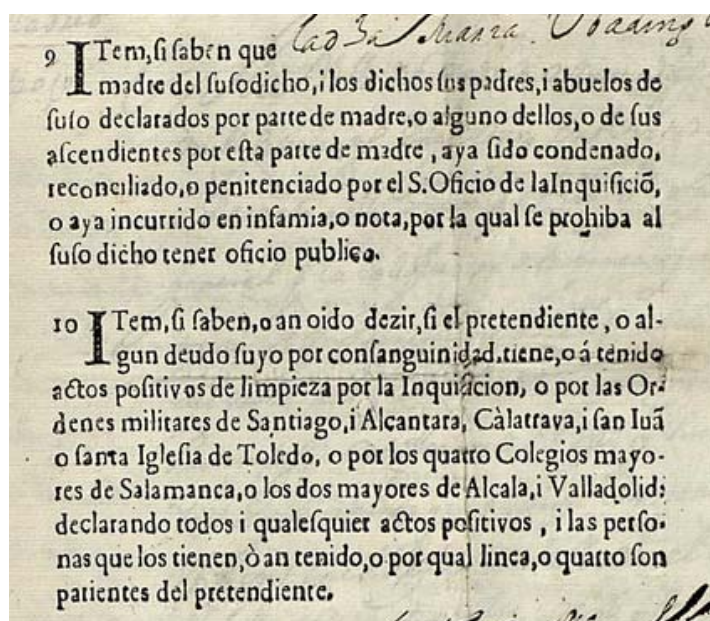 9 ITem,si saben que
madre del susodicho,i los dichos sus padres,i abuelos de
suso declarados por parte de madre,o alguno dellos,o de sus
ascendientes por esta parte de madre , aya sido condenado,
reconciliado,o penitenciado por el S.Oficio de laInquisiciõ,
o aya incurrido en infamia,o nota,por la qual se prohiba al
suso dicho tener oficio publico.
10 ITem,si saben,o an oido dezir,si el pretendiente , o al-
gun deudo suyo por consanguinidad,tiene,o á tenido
actos positivos de limpieza por la Inquisicion, o por las Or-
denes militares de Santiago,i Alcantara, Càlatrava,i san Iuã
o santa Iglesia de Toledo, o por los quatro Colegios mayo-
res de Salamanca,o los dos mayores de Alcala,i Valladolid:
declarando todos i qualesquier actos positivos , i las perso-
nas que los tienen,ò an tenido,o por qual linea,o quarto son
parientes del pretendiente.